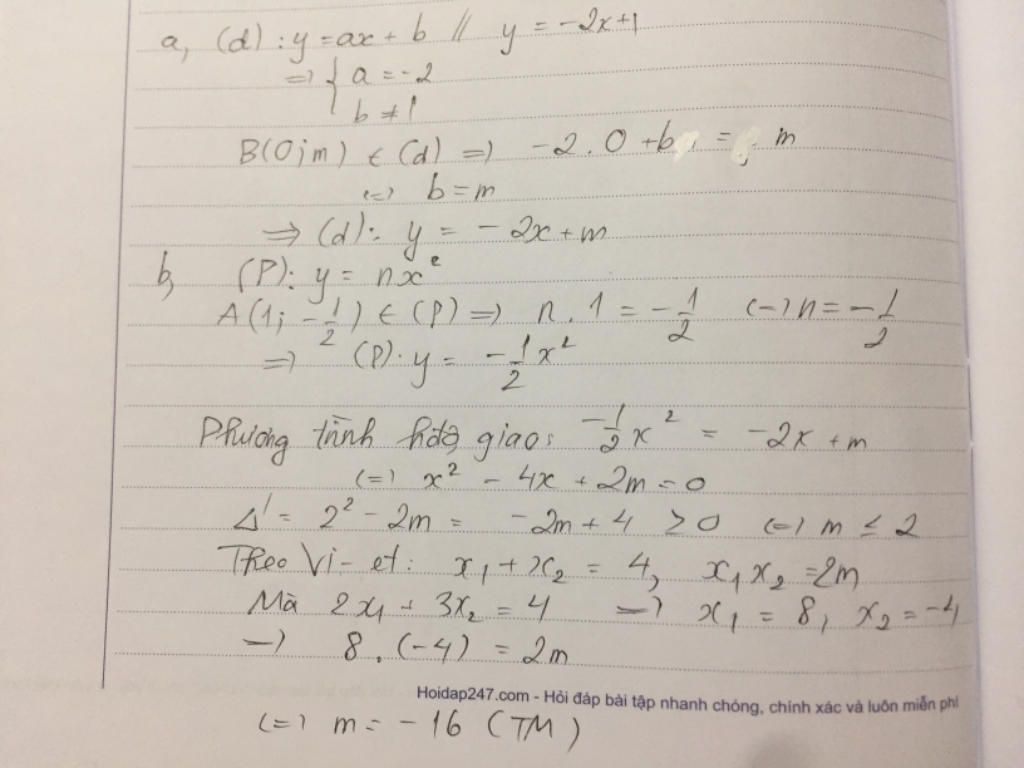 a, (d): y = ax + b // y = -2x+1
=> { a = -2
b ≠ 1
B(0;m) ∈ (d) => -2.0 + b = m
<=> b = m
=> (d): y = -2x + m
b, (P): y = nx²
A(1; -1/2) ∈ (P) => n.1 = -1/2 <=> n = -1/2
=> (P): y = -1/2 x²
Phương trình hđộ giao: -1/2 x² = -2x + m
<=> x² - 4x + 2m = 0
Δ' = 2² - 2m = -2m + 4 ≥ 0 <=> m ≤ 2
Theo Vi-et: x₁ + x₂ = 4, x₁x₂ = 2m
Mà 2x₁ + 3x₂ = 4 => x₁ = 8, x₂ = -4
=> 8.(-4) = 2m
Hoidap247.com - Hỏi đáp bài tập nhanh chóng, chính xác và luôn miễn phí
<=> m = -16 (TM)